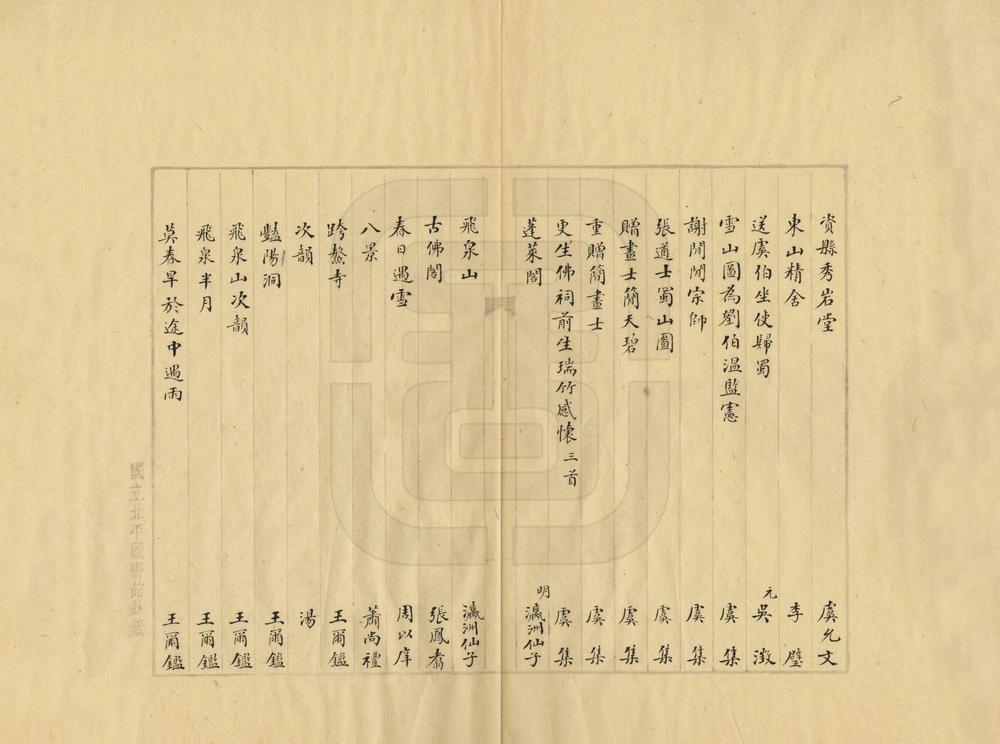 資縣秀岩堂 虞允文
東山精舍 李壁
送虞伯坐使歸蜀 元 吳澂
雪山圖為劉伯溫監憲 虞集
謝閒閒宗師 虞集
張道士蜀山圖 虞集
贈畫士簡天碧 虞集
重贈簡畫士 虞集
更生佛祠前生瑞竹感懷三首 虞集
蓬萊閣 明 瀛洲仙子
飛泉山 瀛洲仙子
古佛閣 張鳳翥
春日遇雪 周以庠
八景 蕭尚禮
跨鰲寺 王爾鑑
次韻 湯
豔陽洞 王爾鑑
飛泉山次韻 王爾鑑
飛泉半月 王爾鑑
莫春早於途中遇雨 王爾鑑
國立北平圖書館